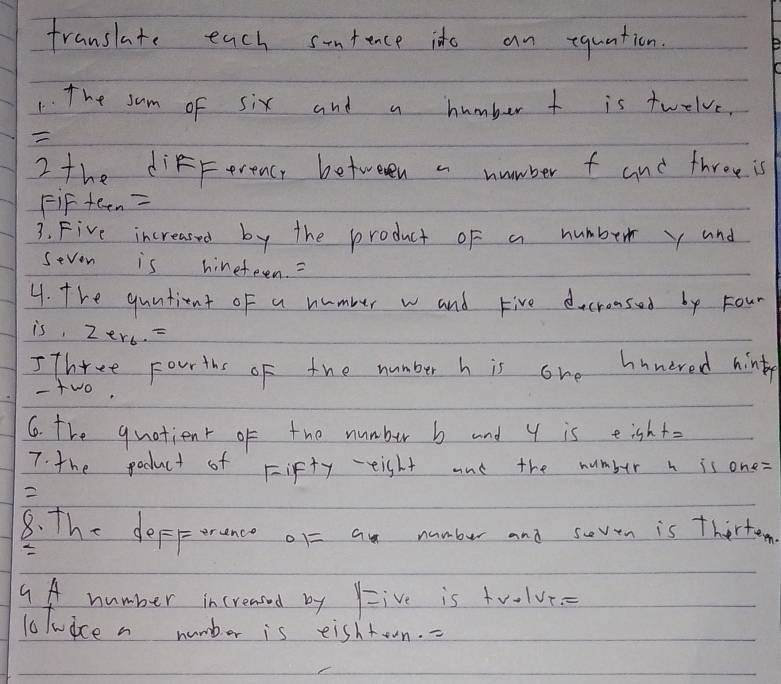 translate each sentence into an equation.
1. The sum of six and a number t is twelve.
=
2 the difference between a number f and three is
Fifteen =
3. Five increased by the product of a number y and
seven is nineteen. =
4. The quotient of a number w and Five decreased by Four
is, zero. =
5 Three Fourths of the number h is one hundred ninty
- two.
6. The quotient of the number b and 4 is eight =
7. the poduct of Fifty-eight and the number n is one =
=
8. The defference of a number and seven is Thirteen.
=
9 A number increased by Five is tvelve. =
10 Twice a number is eighteen. =